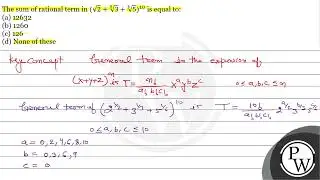 The sum of rational term in (√2 + ∛3 + ⁶√5)¹⁰ is equal to:
(a) 12632
(b) 1260
(c) 126
(d) None of these
Key Concept General term in the expansion of
(x+y+z)ⁿ is T = n!/(a! b! c!) xᵃ yᵇ zᶜ 0 ≤ a, b, c ≤ n
General term of (2^(1/2) + 3^(1/3) + 5^(1/6))¹⁰ is T = 10!/(a! b! c!) 2^(a/2) 3^(b/3) 5^(c/6)
0 ≤ a, b, c ≤ 10
a = 0, 2, 4, 6, 8, 10
b = 0, 3, 6, 9
c = 0
PW